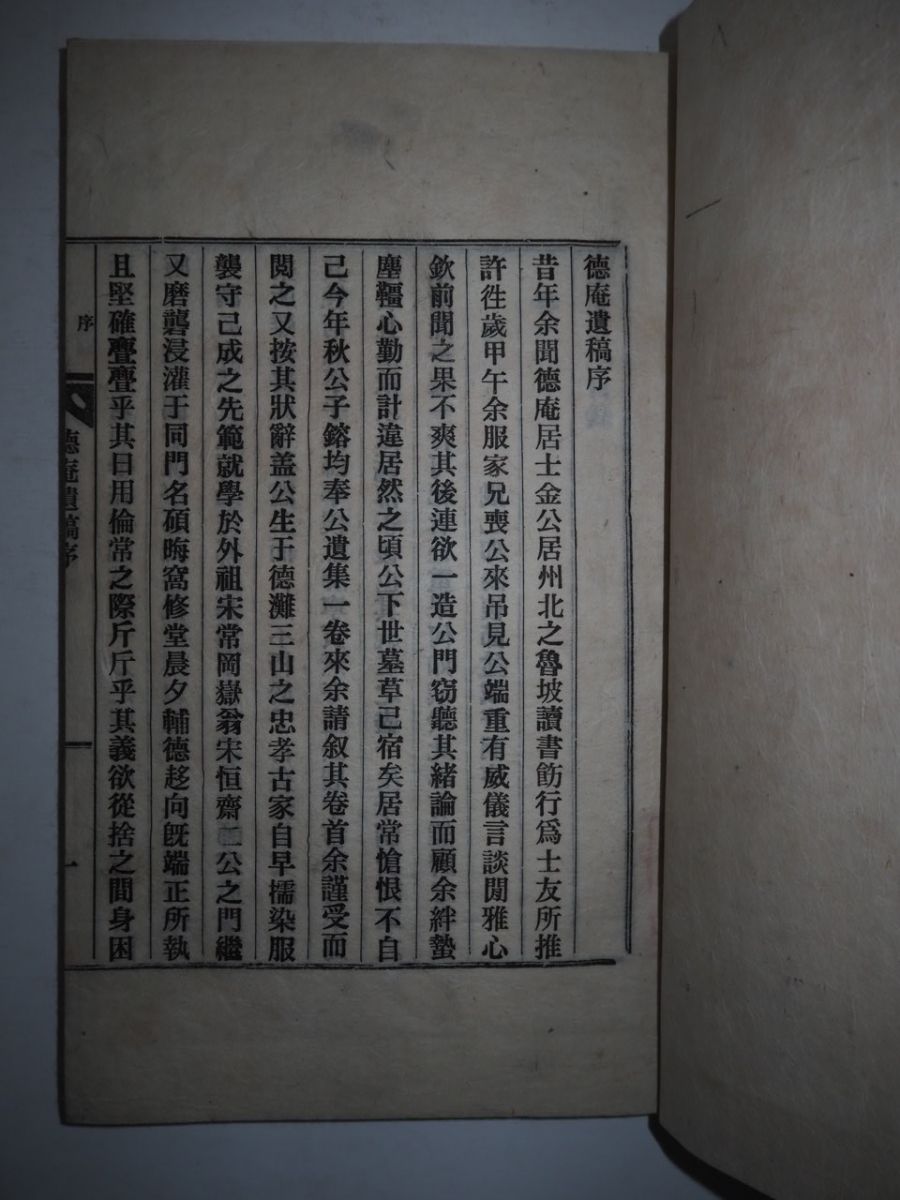 德庵遺稿序
昔年余聞德庵居士金公居州北之魯坡讀書飭行爲士友所推
許徃歲甲午余服家兄喪公來吊見公端重有威儀言談閒雅心
欽前聞之果不爽其後連欲一造公門窃聽其緖論而顧余絆蟄
塵韁心勤而計違居然之頃公下世墓草已宿矣居常愴恨不自
已今年秋公子鎔均奉公遺集一卷來余請叙其卷首余謹受而
閱之又按其狀辭盖公生于德灘三山之忠孝古家自早擩染服
襲守己成之先範就學於外祖宋常岡嶽翁宋恒齋二公之門繼
又磨礱浸灌于同門名碩晦窩修堂晨夕輔德趍向旣端正所執
且堅確亹亹乎其日用倫常之際斤斤乎其義欲從捨之間身困
序
德庵遺稿序
一